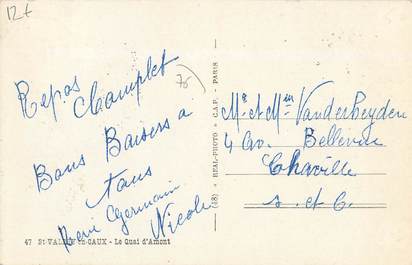 12€
75
Repos Complet
Bons Baisers a
tous
René Germain
Nicole
47 St-VALERY-en-CAUX - Le Quai d'Amont
(48) ★ REAL-PHOTO ★ C.A.P. - PARIS
Mr et Mme Vanderheyden
4 Av. Bellevue
Chaville
S. et O.